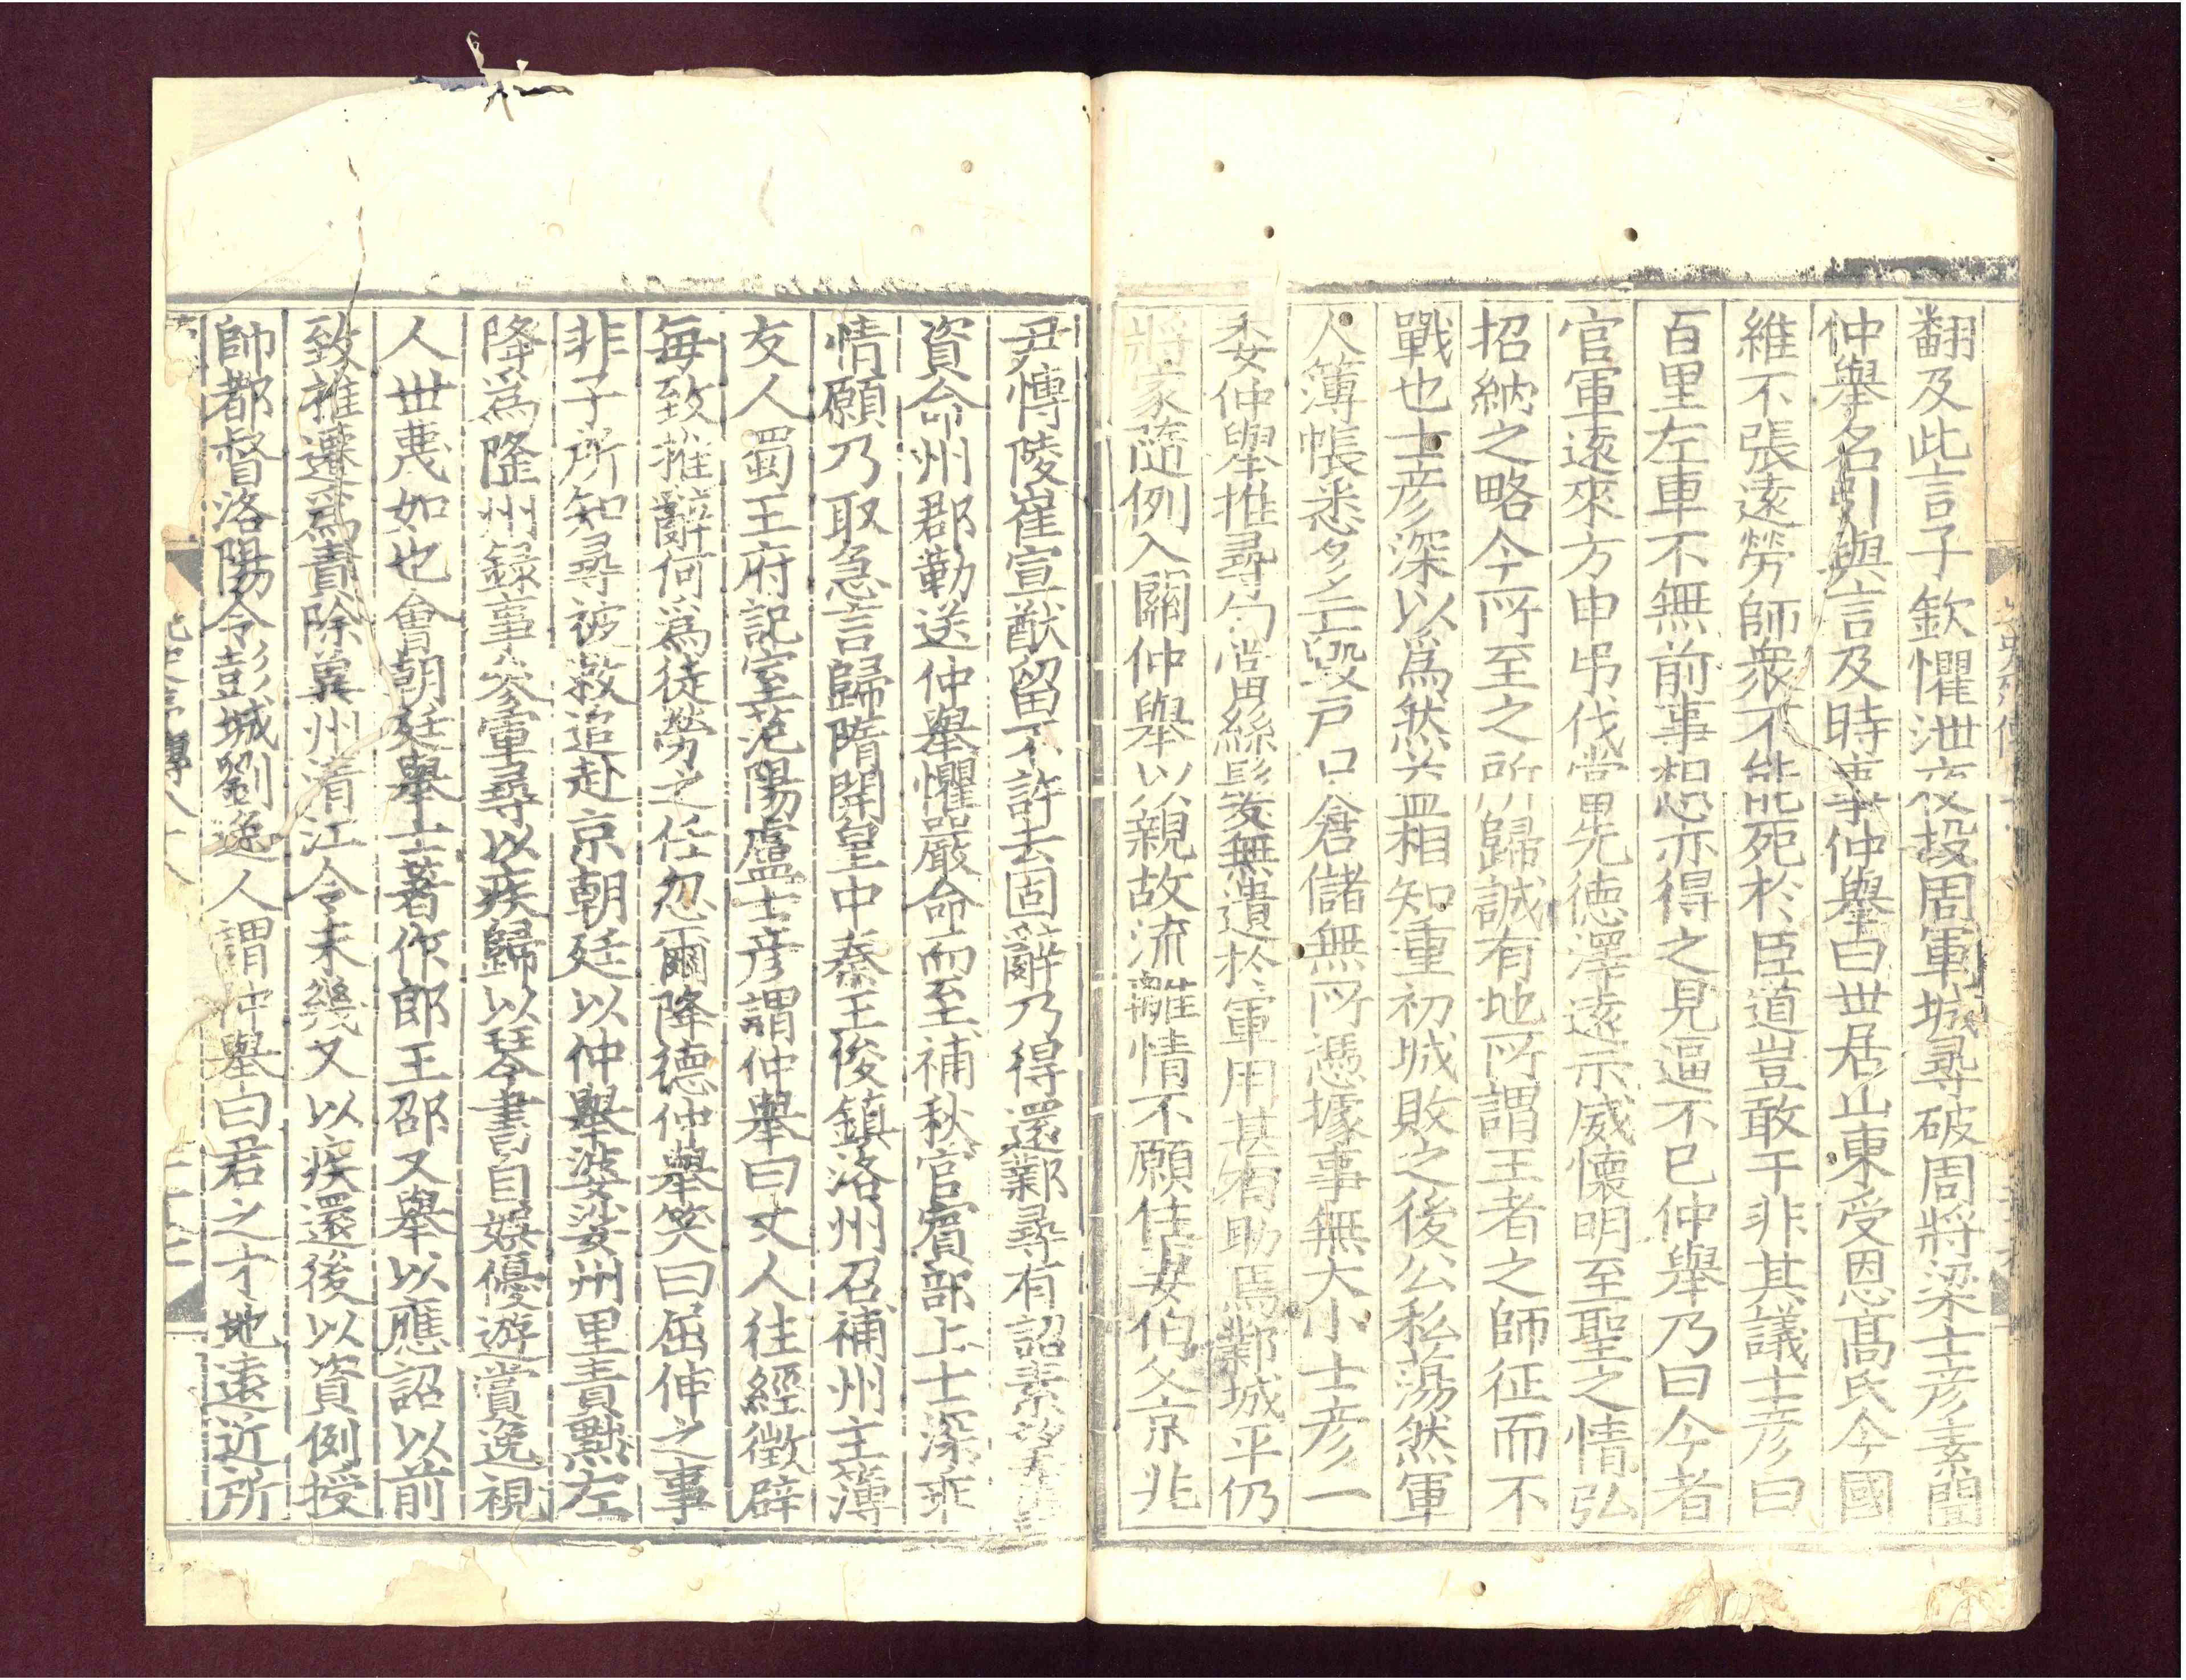 翻及此言子欽懼泄夜投周軍城尋破周將梁士彦素聞
仲舉名引與言及時事仲舉曰世居山東受恩高氏今國
維不張遠勞師衆不能死於臣道豈敢干非其議士彦曰
百里左車不無前事想亦得之見逼不已仲舉乃曰今者
官軍遠來方申弔伐當先徳澤遠示威懷明至聖之情弘
招納之略今所至之所歸誠有地所謂王者之師征而不
戰也士彦深以爲然益相知重初城敗之後公私蕩然軍
人簿帳悉多亡毀戸口倉儲無所憑據事無大小士彦一
委仲舉推尋勾當絲髮無遺於軍用甚有助焉鄴城平仍
將家隨例入關仲舉以親故流離情不願住妻伯父京兆
尹博陵崔宣猷留不許去固辭乃得還鄴尋有詔素望
資命州郡勒送仲舉懼嚴命而至補秋官賓部上士深乖
情願乃取急言歸隋開皇中秦王俊鎮洛州召補州主簿
友人蜀王府記室范陽盧士彦謂仲舉曰丈人往經徵辟
每致推辭何爲徒勞之任忽爾降德仲舉笑曰屈伸之事
非子所知尋被敕追赴京朝廷以仲舉婆娑州里責黜左
降爲隆州録事參軍尋以疾歸以琴書自娱優遊賞逸視
人世蔑如也會朝廷舉士著作郎王邵又舉以應詔以前
致推遷爲責除兾州清江令未幾又以疾還後以資例授
帥都督洛陽令彭城劉逸人謂仲舉曰君之才地遠近所